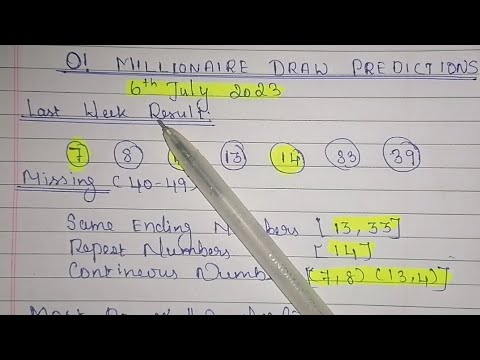 O! MILLIONAIRE DRAW PREDICTIONS
6th July 2023
Last Week Result:
7 8 13 14 33 39
Missing (40-49)
Same Ending Numbers [13, 33]
Repeat Numbers [14]
Continuous Numb [7,8) (13,4)]